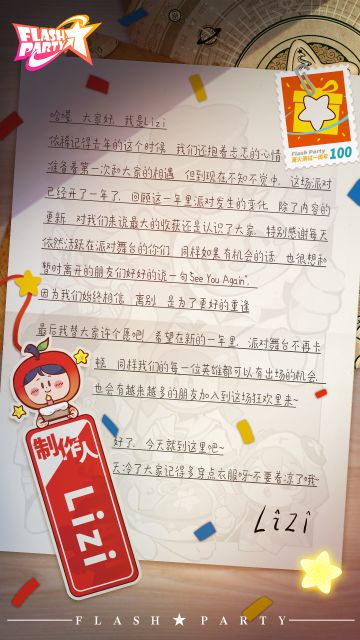 FLASH PARTY
哈喽，大家好，我是Lizi
依稀记得去年的这个时候，我们还抱着忐忑的心情
准备着第一次和大家的相遇，但到现在不知不觉中，这场派对
已经开了一年了，回顾这一年里派对发生的变化，除了内容的
更新，对我们来说最大的收获还是认识了大家，特别感谢每天
依然活跃在派对舞台的你们，同样如果有机会的话，也很想和
暂时离开的朋友们好好的说一句See You Again，
因为我们始终相信，离别，是为了更好的重逢
最后我替大家许个愿吧！希望在新的一年里，派对舞台不再卡
顿，同样我们的每一位英雄都可以有出场的机会，
也会有越来越多的朋友加入到这场狂欢里来~
好了，今天就到这里吧~
天冷了大家记得多穿点衣服呀不要着凉了哦~
Lizi
Flash Party
100
制作人
Lizi
FLASH★PARTY